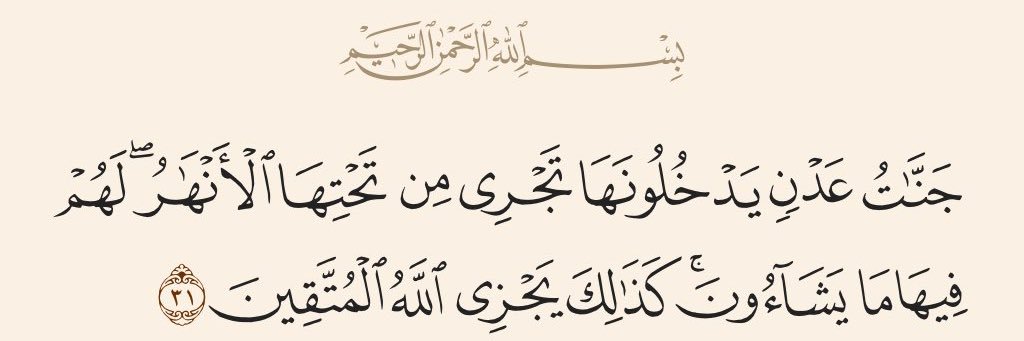 بِسْمِ ٱللَّهِ ٱلرَّحْمَٰنِ ٱلرَّحِيمِ
جَنَّٰتُ عَدْنٍ يَدْخُلُونَهَا تَجْرِى مِن تَحْتِهَا ٱلْأَنْهَٰرُ ۖ لَهُمْ
فِيهَا مَا يَشَآءُونَ ۚ كَذَٰلِكَ يَجْزِى ٱللَّهُ ٱلْمُتَّقِينَ ٣١